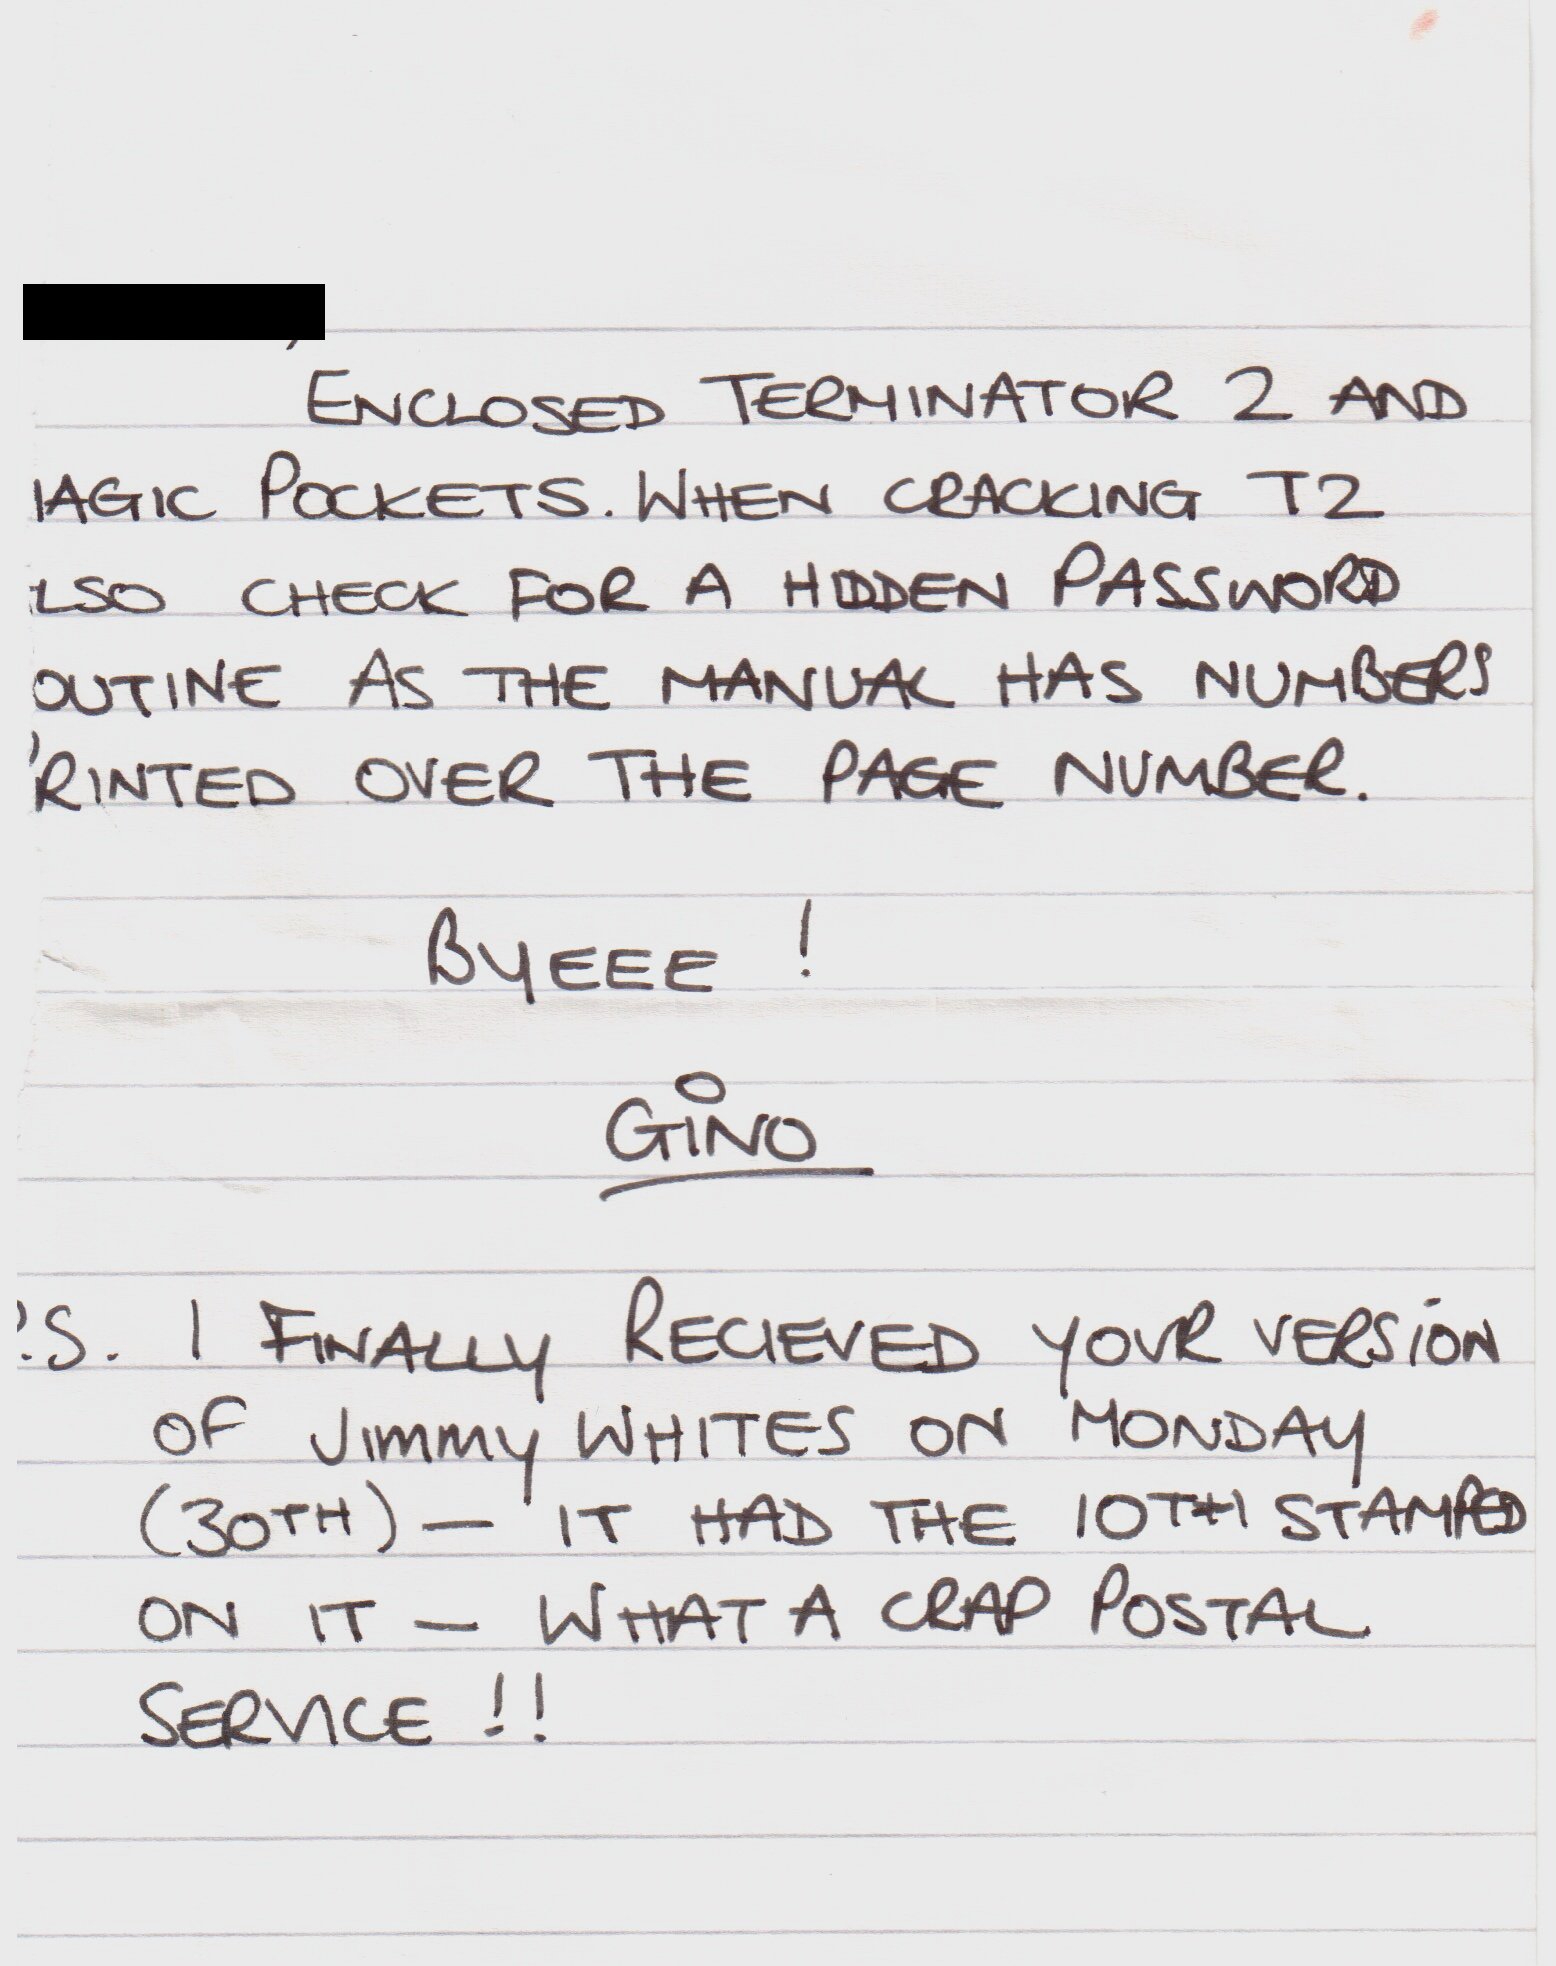 ,
ENCLOSED TERMINATOR 2 AND
IAGIC POCKETS. WHEN CRACKING T2
LSO CHECK FOR A HIDDEN PASSWORD
OUTINE AS THE MANUAL HAS NUMBERS
'RINTED OVER THE PAGE NUMBER.
BYEEE !
GINO
'.S. I FINALLY RECIEVED YOUR VERSION
OF JIMMY WHITES ON MONDAY
(30TH) — IT HAD THE 10TH STAMPED
ON IT — WHAT A CRAP POSTAL
SERVICE !!